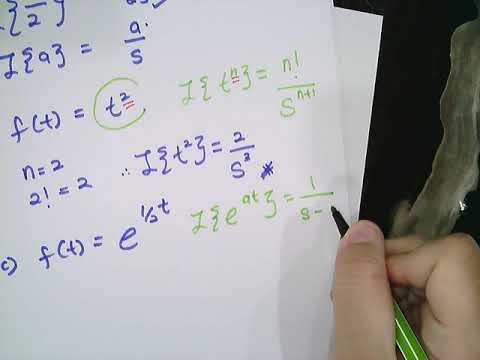 ℒ{a} = a/s
f(t) = t² ℒ{tⁿ} = n!/sⁿ⁺¹
n = 2
2! = 2 ∴ ℒ{t²} = 2/s³ *
c) f(t) = e^(1/3 t) ℒ{e^(at)} = 1/(s-